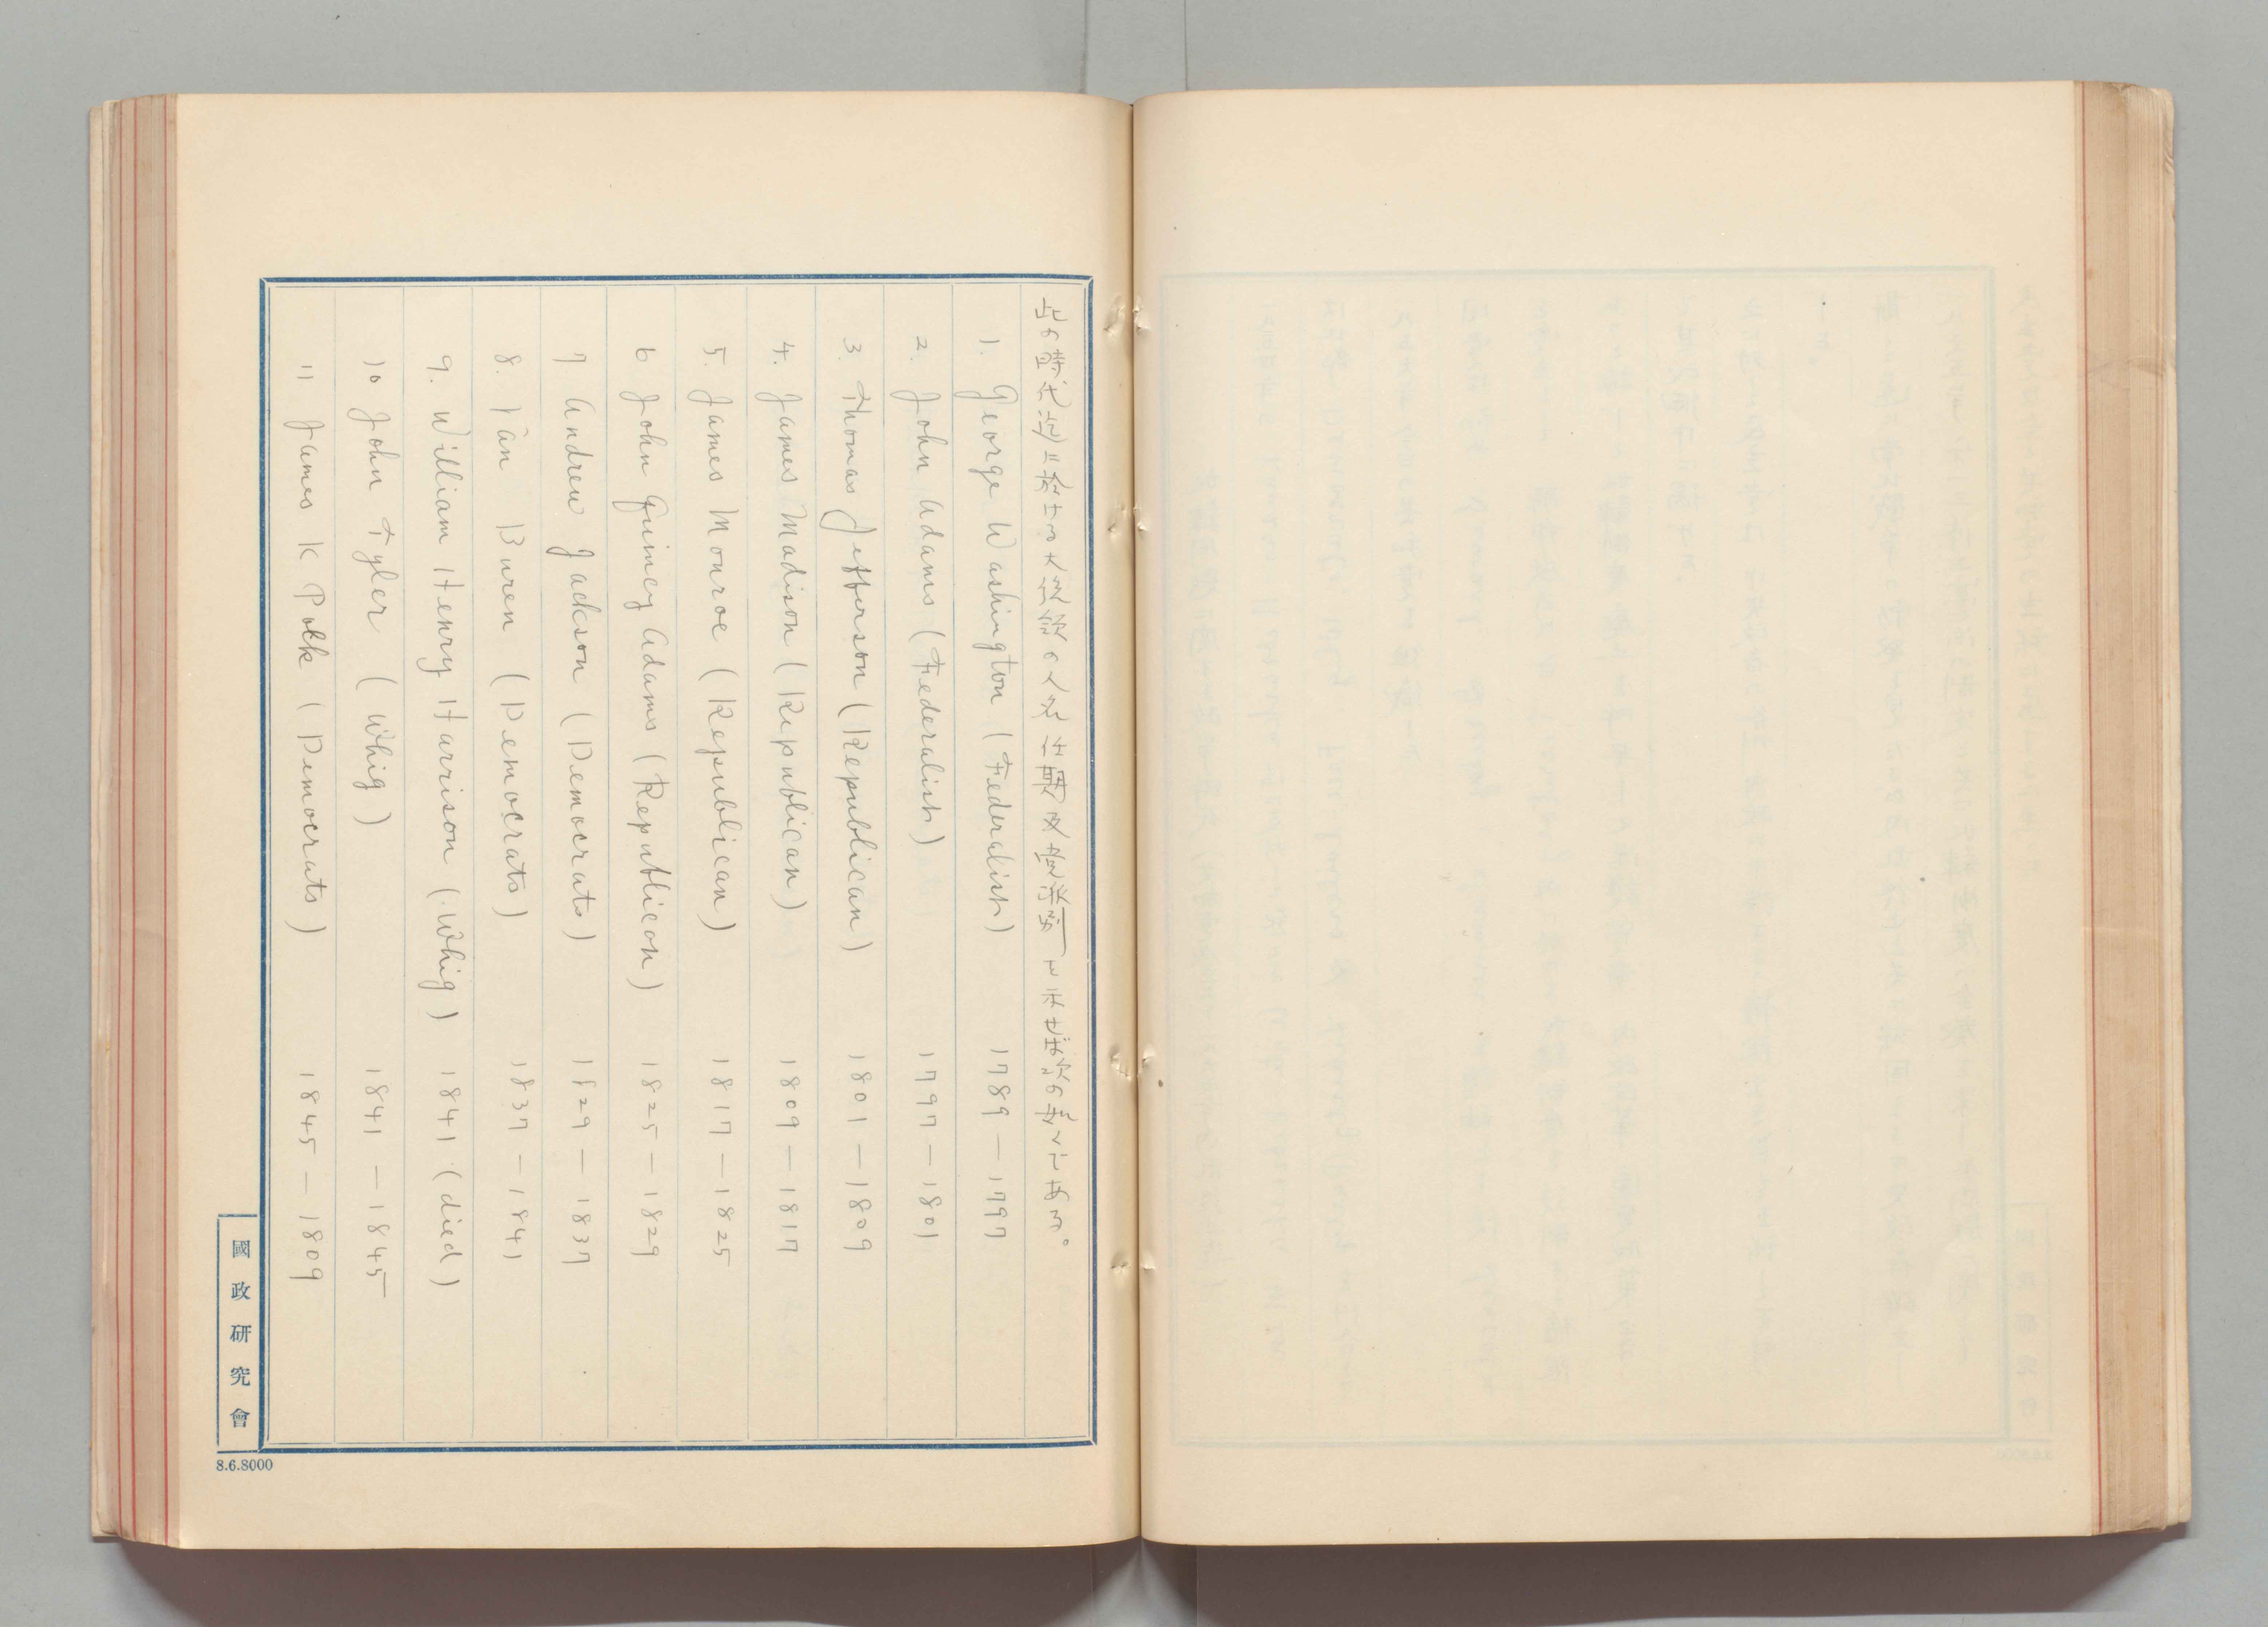 此の時代迄に於ける大統領の人名任期及党派別を示せば次の如くである。
1. George Washington (Federalist) 1789 — 1797
2. John Adams (Federalist) 1797 — 1801
3. Thomas Jefferson (Republican) 1801 — 1809
4. James Madison (Republican) 1809 — 1817
5. James Monroe (Republican) 1817 — 1825
6 John Quincy Adams (Republican) 1825 — 1829
7 Andrew Jackson (Democrats) 1829 — 1837
8. Van Buren (Democrats) 1837 — 1841
9. William Henry Harrison (Whig) 1841 (died)
10 John Tyler (Whig) 1841 — 1845
11 James K Polk (Democrats) 1845 — 1809
國政研究會
8.6.8000